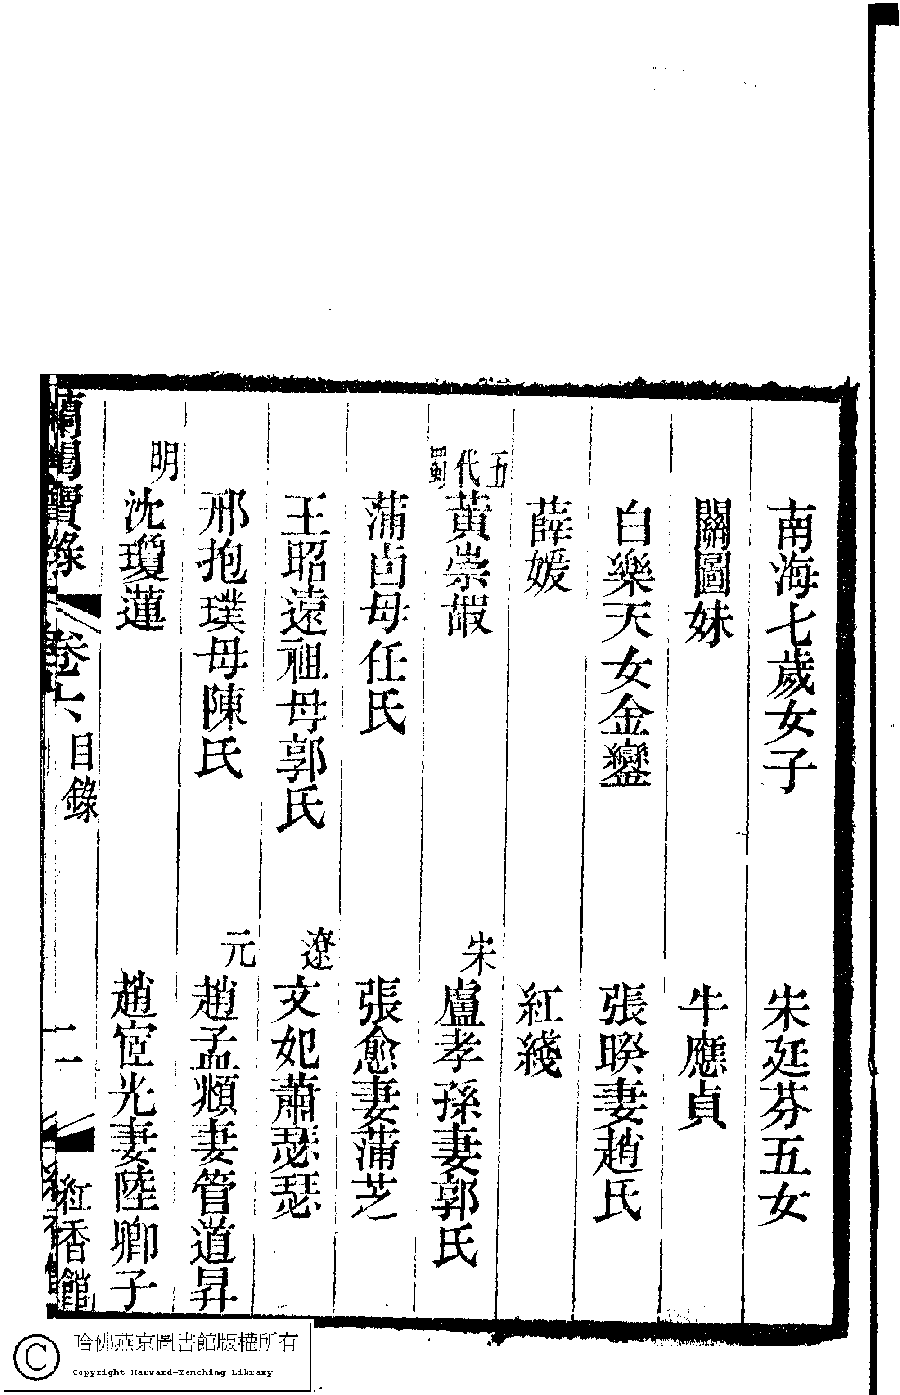 南海七歲女子 宋廷芬五女
關圖妹 牛應貞
白樂天女金鑾 張睽妻趙氏
薛媛 紅綫
五代蜀 黃崇嘏 宋 盧孝孫妻郭氏
蒲卤母任氏 張愈妻蒲芝
王昭遠祖母郭氏 遼 文妃蕭瑟瑟
邢抱璞母陳氏 元 趙孟頫妻管道昇
明 沈瓊蓮 趙宧光妻陸卿子
蘭閨寶錄 卷六 目錄 二 紅香館
哈佛燕京圖書館版權所有
Copyright Harvard-Yenching Library